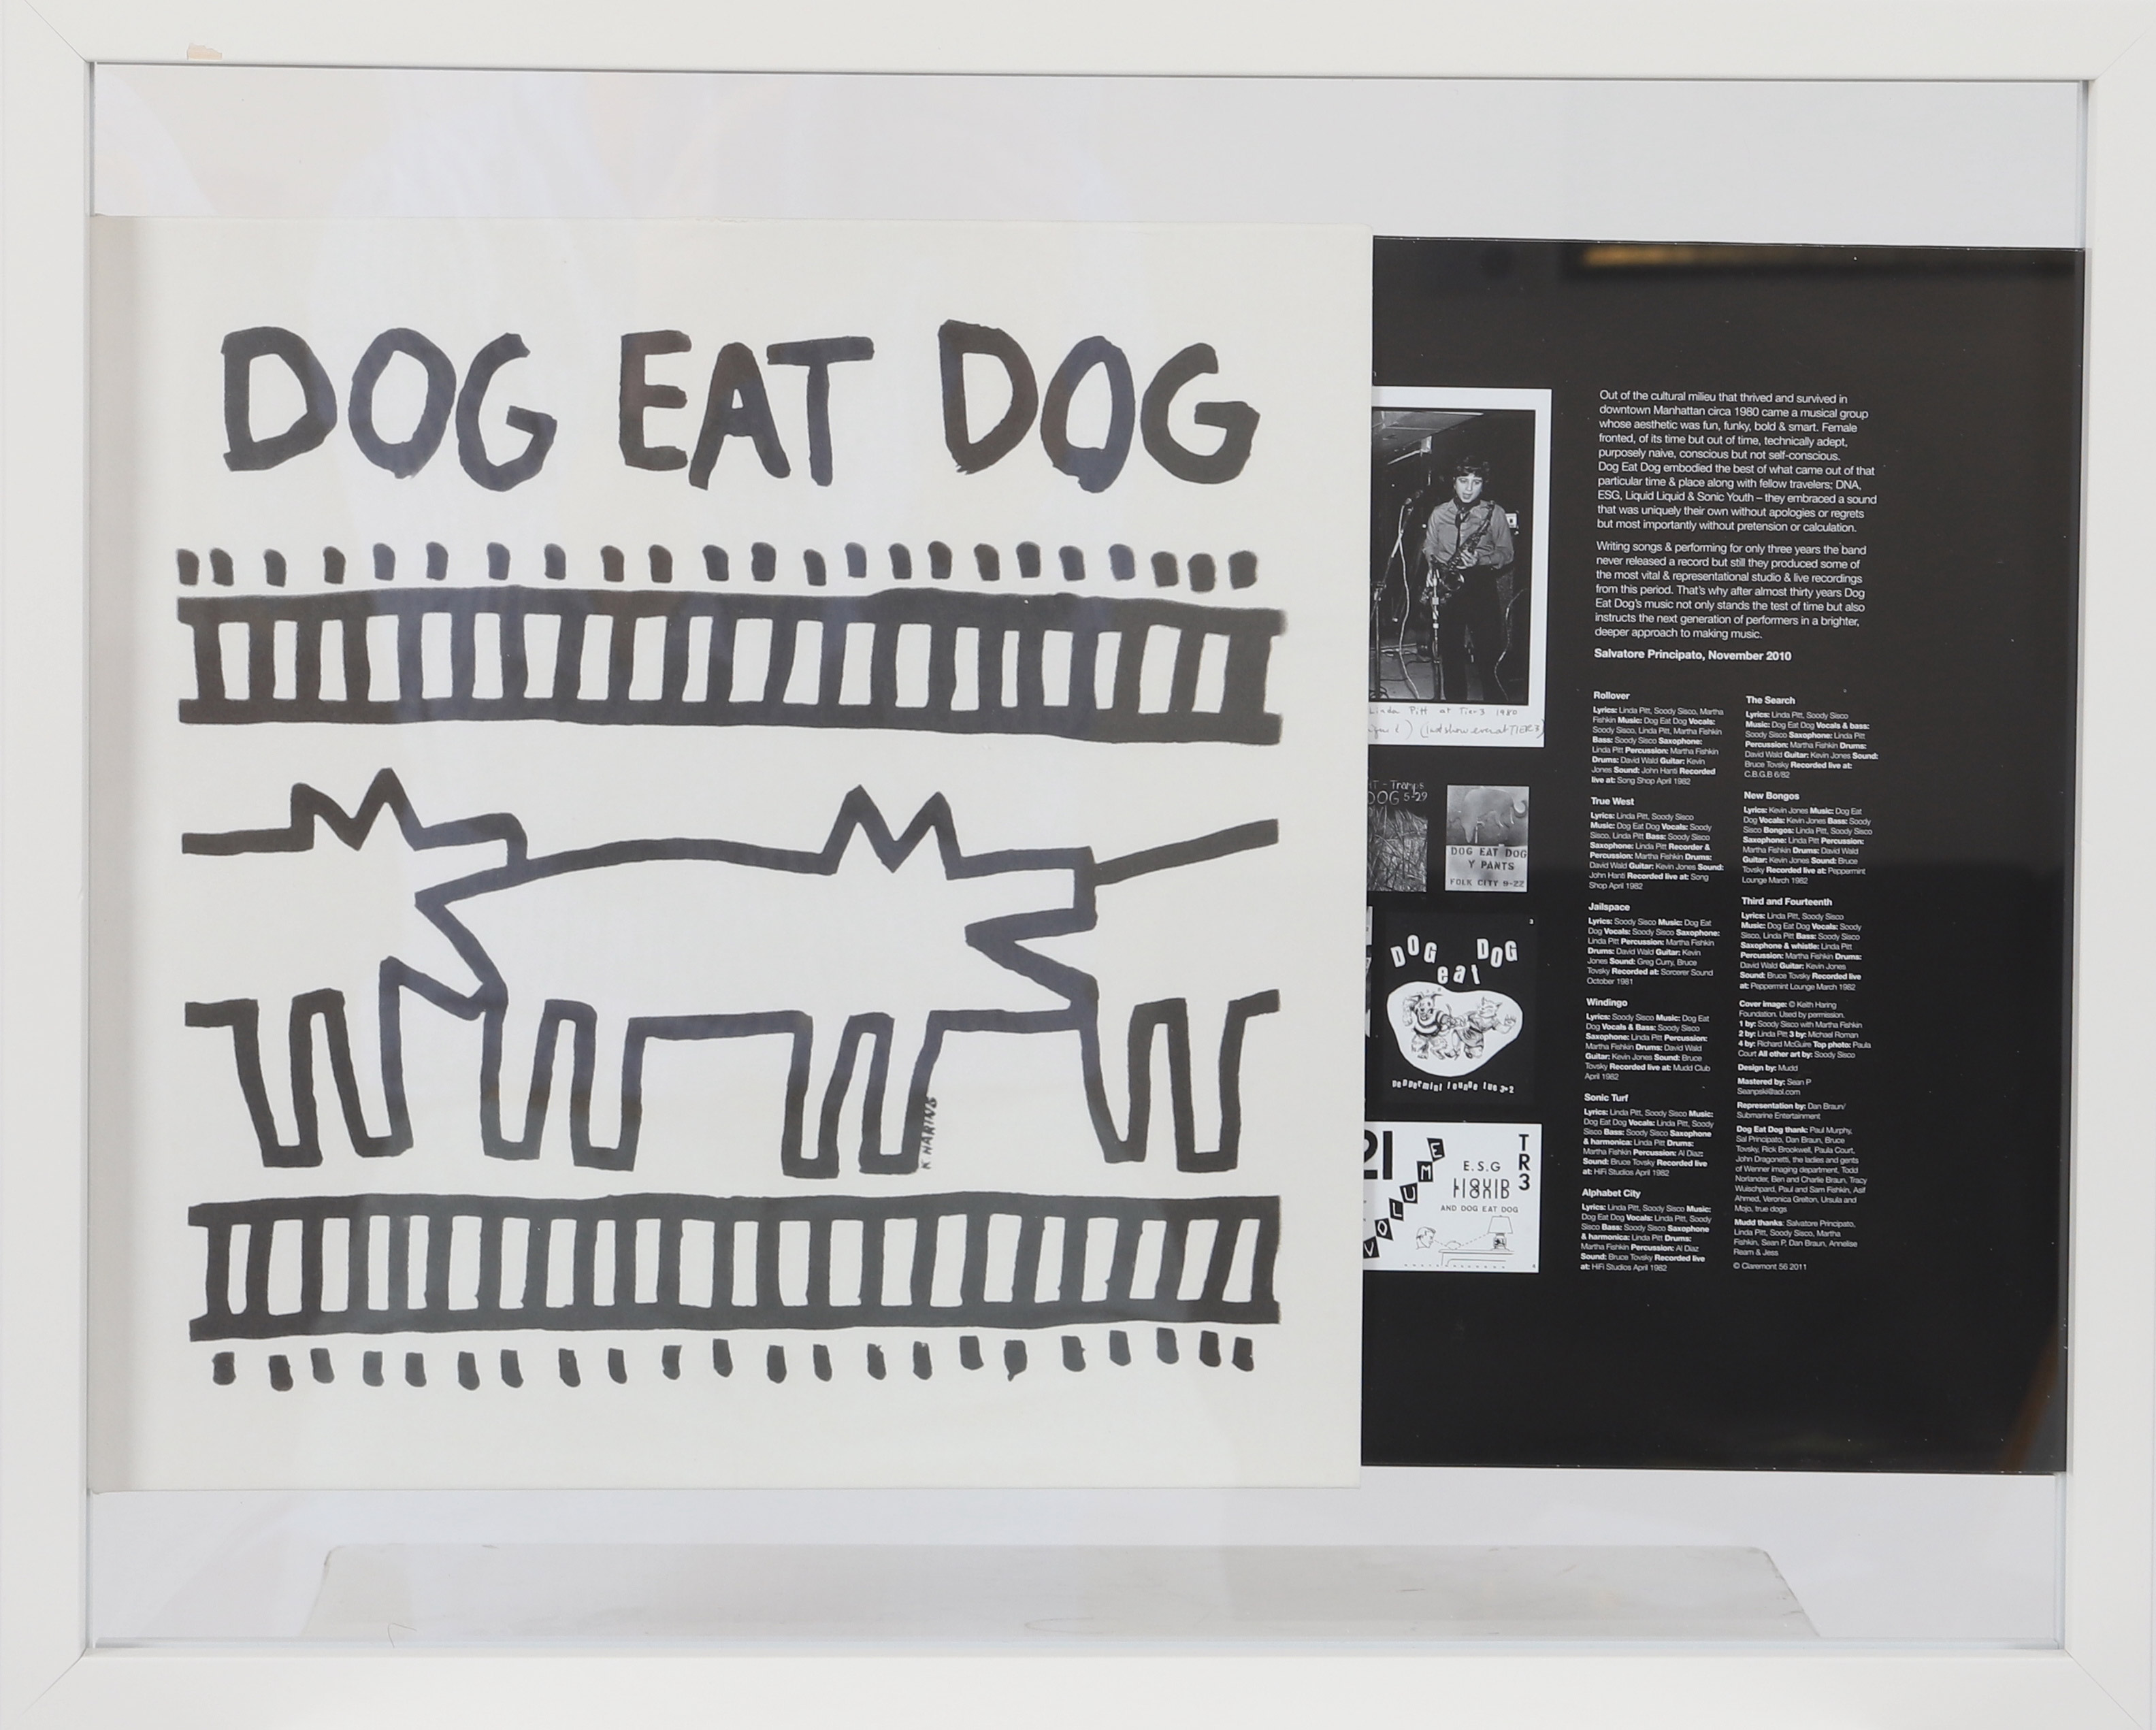 DOG EAT DOG
K. HARING
Linda Pitt at Tier 3 1980
(last show ever at TIER 3)
Tramps
DOG 5-29
DOG EAT DOG
Y PANTS
FOLK CITY 9-22
3
DOG DOG
eat
Peppermint lounge tue 3·2
21
VOLUME
E.S.G
LIQUID
LIQUID
AND DOG EAT DOG
TR3
4
Out of the cultural milieu that thrived and survived in
downtown Manhattan circa 1980 came a musical group
whose aesthetic was fun, funky, bold & smart. Female
fronted, of its time but out of time, technically adept,
purposely naive, conscious but not self-conscious.
Dog Eat Dog embodied the best of what came out of that
particular time & place along with fellow travelers; DNA,
ESG, Liquid Liquid & Sonic Youth – they embraced a sound
that was uniquely their own without apologies or regrets
but most importantly without pretension or calculation.
Writing songs & performing for only three years the band
never released a record but still they produced some of
the most vital & representational studio & live recordings
from this period. That's why after almost thirty years Dog
Eat Dog's music not only stands the test of time but also
instructs the next generation of performers in a brighter,
deeper approach to making music.
Salvatore Principato, November 2010
Rollover
Lyrics: Linda Pitt, Soody Sisco, Martha
Fishkin Music: Dog Eat Dog Vocals:
Soody Sisco, Linda Pitt, Martha Fishkin
Bass: Soody Sisco Saxophone:
Linda Pitt Percussion: Martha Fishkin
Drums: David Wald Guitar: Kevin
Jones Sound: John Hanti Recorded
live at: Song Shop April 1982
True West
Lyrics: Linda Pitt, Soody Sisco
Music: Dog Eat Dog Vocals: Soody
Sisco, Linda Pitt Bass: Soody Sisco
Saxophone: Linda Pitt Recorder &
Percussion: Martha Fishkin Drums:
David Wald Guitar: Kevin Jones Sound:
John Hanti Recorded live at: Song
Shop April 1982
Jailspace
Lyrics: Soody Sisco Music: Dog Eat
Dog Vocals: Soody Sisco Saxophone:
Linda Pitt Percussion: Martha Fishkin
Drums: David Wald Guitar: Kevin
Jones Sound: Greg Curry, Bruce
Tovsky Recorded at: Sorcerer Sound
October 1981
Windingo
Lyrics: Soody Sisco Music: Dog Eat
Dog Vocals & Bass: Soody Sisco
Saxophone: Linda Pitt Percussion:
Martha Fishkin Drums: David Wald
Guitar: Kevin Jones Sound: Bruce
Tovsky Recorded live at: Mudd Club
April 1982
Sonic Turf
Lyrics: Linda Pitt, Soody Sisco Music:
Dog Eat Dog Vocals: Linda Pitt, Soody
Sisco Bass: Soody Sisco Saxophone
& harmonica: Linda Pitt Drums:
Martha Fishkin Percussion: Al Diaz
Sound: Bruce Tovsky Recorded live
at: HiFi Studios April 1982
Alphabet City
Lyrics: Linda Pitt, Soody Sisco Music:
Dog Eat Dog Vocals: Linda Pitt, Soody
Sisco Bass: Soody Sisco Saxophone
& harmonica: Linda Pitt Drums:
Martha Fishkin Percussion: Al Diaz
Sound: Bruce Tovsky Recorded live
at: HiFi Studios April 1982
The Search
Lyrics: Linda Pitt, Soody Sisco
Music: Dog Eat Dog Vocals & bass:
Soody Sisco Saxophone: Linda Pitt
Percussion: Martha Fishkin Drums:
David Wald Guitar: Kevin Jones Sound:
Bruce Tovsky Recorded live at:
C.B.G.B 6/82
New Bongos
Lyrics: Kevin Jones Music: Dog Eat
Dog Vocals: Kevin Jones Bass: Soody
Sisco Bongos: Linda Pitt, Soody Sisco
Saxophone: Linda Pitt Percussion:
Martha Fishkin Drums: David Wald
Guitar: Kevin Jones Sound: Bruce
Tovsky Recorded live at: Peppermint
Lounge March 1982
Third and Fourteenth
Lyrics: Linda Pitt, Soody Sisco
Music: Dog Eat Dog Vocals: Soody
Sisco, Linda Pitt Bass: Soody Sisco
Saxophone & whistle: Linda Pitt
Percussion: Martha Fishkin Drums:
David Wald Guitar: Kevin Jones
Sound: Bruce Tovsky Recorded live
at: Peppermint Lounge March 1982
Cover image: © Keith Haring
Foundation. Used by permission.
1 by: Soody Sisco with Martha Fishkin
2 by: Linda Pitt 3 by: Michael Roman
4 by: Richard McGuire Top photo: Paula
Court All other art by: Soody Sisco
Design by: Mudd
Mastered by: Sean P
Seanpski@aol.com
Representation by: Dan Braun/
Submarine Entertainment
Dog Eat Dog thank: Paul Murphy,
Sal Principato, Dan Braun, Bruce
Tovsky, Rick Brookwell, Paula Court,
John Dragonetti, the ladies and gents
of Wenner imaging department, Todd
Norlander, Ben and Charlie Braun, Tracy
Wuischpard, Paul and Sam Fishkin, Asif
Ahmed, Veronica Grelton, Ursula and
Mojo, true dogs
Mudd thanks: Salvatore Principato,
Linda Pitt, Soody Sisco, Martha
Fishkin, Sean P, Dan Braun, Annelise
Ream & Jess
© Claremont 56 2011